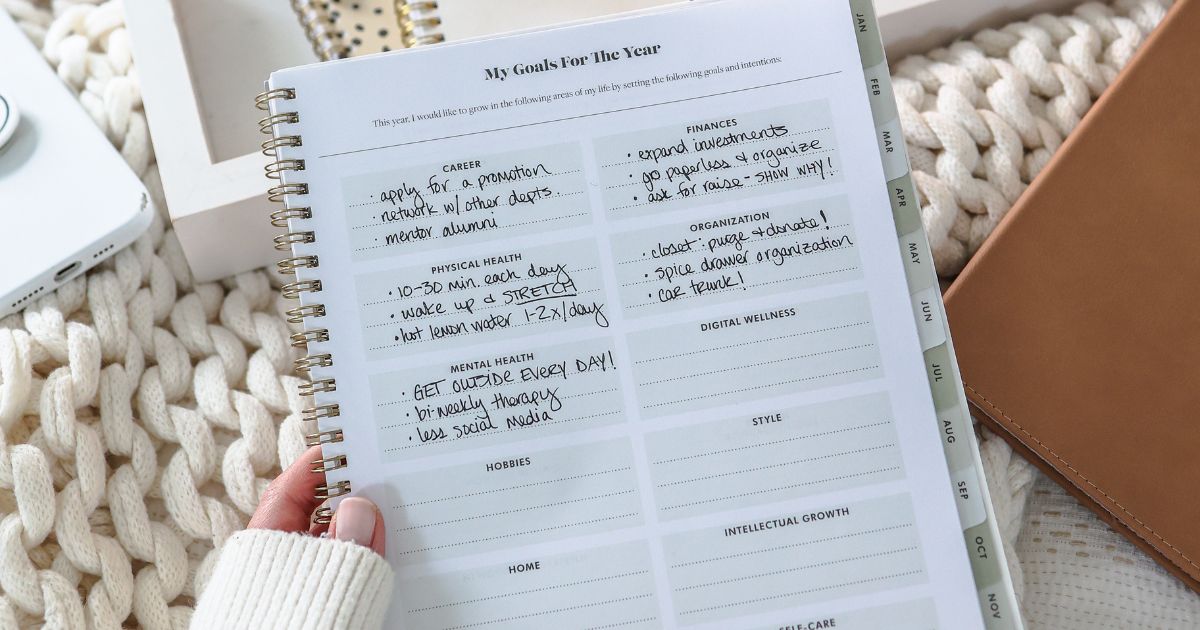 My Goals For The Year
This year, I would like to grow in the following areas of my life by setting the following goals and intentions:
CAREER
• apply for a promotion
• network w/ other depts
• mentor alumni
PHYSICAL HEALTH
• 10-30 min. each day
• wake up & STRETCH
• hot lemon water 1-2x/day
MENTAL HEALTH
• GET OUTSIDE EVERY DAY!
• bi-weekly therapy
• less social media
HOBBIES
HOME
FINANCES
• expand investments
• go paperless & organize
• ask for raise - SHOW WHY!
ORGANIZATION
• closet: purge & donate!
• spice drawer organization
• car trunk!
DIGITAL WELLNESS
STYLE
INTELLECTUAL GROWTH
SELF-CARE
JAN
FEB
MAR
APR
MAY
JUN
JUL
AUG
SEP
OCT
NOV